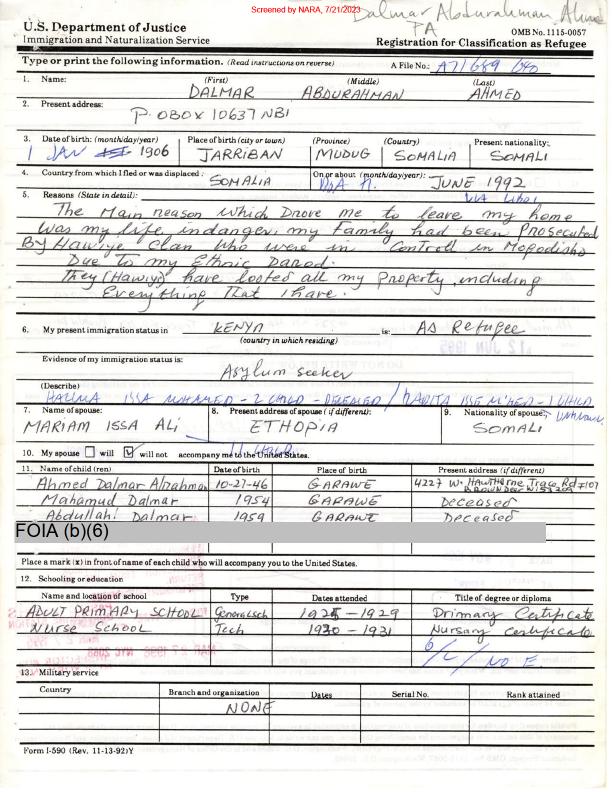 Screened by NARA, 7/21/2023
Dalmar Abdurahman Ahmed
PA
U.S. Department of Justice
Immigration and Naturalization Service
OMB No. 1115-0057
Registration for Classification as Refugee
Type or print the following information. (Read instructions on reverse)
A File No.: A71 689 640
1. Name: (First) (Middle) (Last)
DALMAR ABDURAHMAN AHMED
2. Present address:
P. OBOX 10637 NBI
3. Date of birth: (month/day/year) Place of birth (city or town) (Province) (Country) Present nationality:
1 JAN 1906 JARRIBAN MUDUG SOMALIA SOMALI
4. Country from which I fled or was displaced: SOMALIA On or about: (month/day/year): JUNE 1992
5. Reasons (State in detail):
The Main reason which Drove me to leave my home
was my life, indanger, my family had been Prosecuted
By Hawiye Clan who were in Controll in Mogodisho
Due to my Ethnic
They (Hawiye) have looted all my Property, including
Everything That I have.
6. My present immigration status in KENYA is: As Refugee
(country in which residing)
Evidence of my immigration status is:
Asylum seeker
(Describe)
HALIMA ISSA MOHAMED - 2 CHILD - DECEASED / ISSE M'HED - 1 CHILD
- UNKNOWN
7. Name of spouse: 8. Present address of spouse (if different): 9. Nationality of spouse:
MARIAM ISSA ALi ETHOPIA SOMALI
11 CHILD
10. My spouse will will not accompany me to the United States.
11. Name of child (ren) Date of birth Place of birth Present address (if different)
Ahmed Dalmar Abdrahman 10-27-46 GARAWE 4227 W. HAWTHorne Trace Rd #107
BROWN Deer Wi 53209
Mahamud Dalmar 1954 GARAWE Deceased
Abdullahi Dalmar 1959 GARAWE Deceased
FOIA (b)(6)
Place a mark (x) in front of name of each child who will accompany you to the United States.
12. Schooling or education
Name and location of school Type Dates attended Title of degree or diploma
ADULT PRIMARY SCHOOL General sch 1925 - 1929 Primary Certificate
Nurse School Tech 1930 - 1931 Nursary certificate
NO E.
13. Military service
Country Branch and organization Dates Serial No. Rank attained
NONE
Form I-590 (Rev. 11-13-92)Y